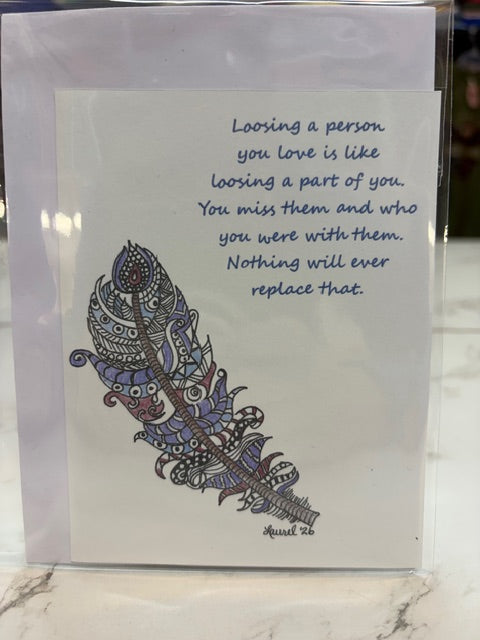 Loosing a person
you love is like
loosing a part of you.
You miss them and who
you were with them.
Nothing will ever
replace that.
Laurel '26